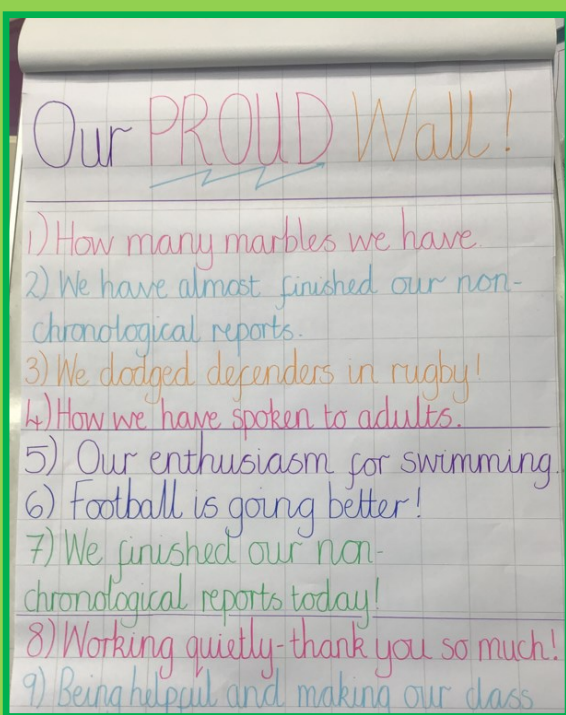 Our PROUD Wall!
1) How many marbles we have.
2) We have almost finished our non-
chronological reports.
3) We dodged defenders in rugby!
4) How we have spoken to adults.
5) Our enthusiasm for swimming.
6) Football is going better!
7) We finished our non-
chronological reports today!
8) Working quietly-thank you so much!
9) Being helpful and making our class